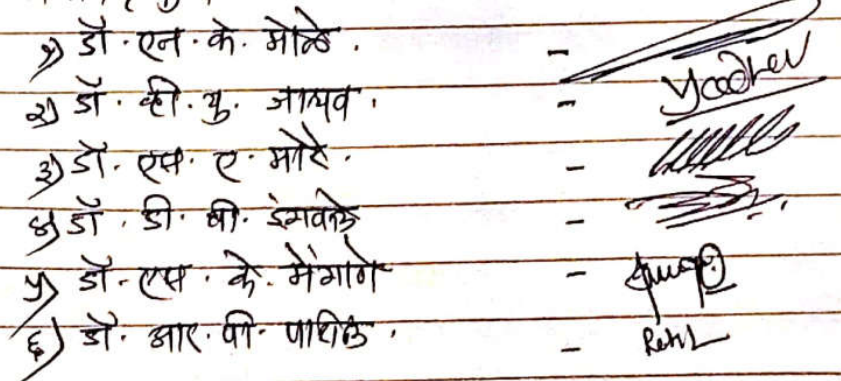 १) डॉ. एन. के. मोळे. -
२) डॉ. व्ही. यु. जाधव. - Yaadhav
३) डॉ. एस. ए. मोरे. -
४) डॉ. डी. बी. इंगवले -
५) डॉ. एस. के. मेंगाणे -
६) डॉ. आर. पी. पाटील. -